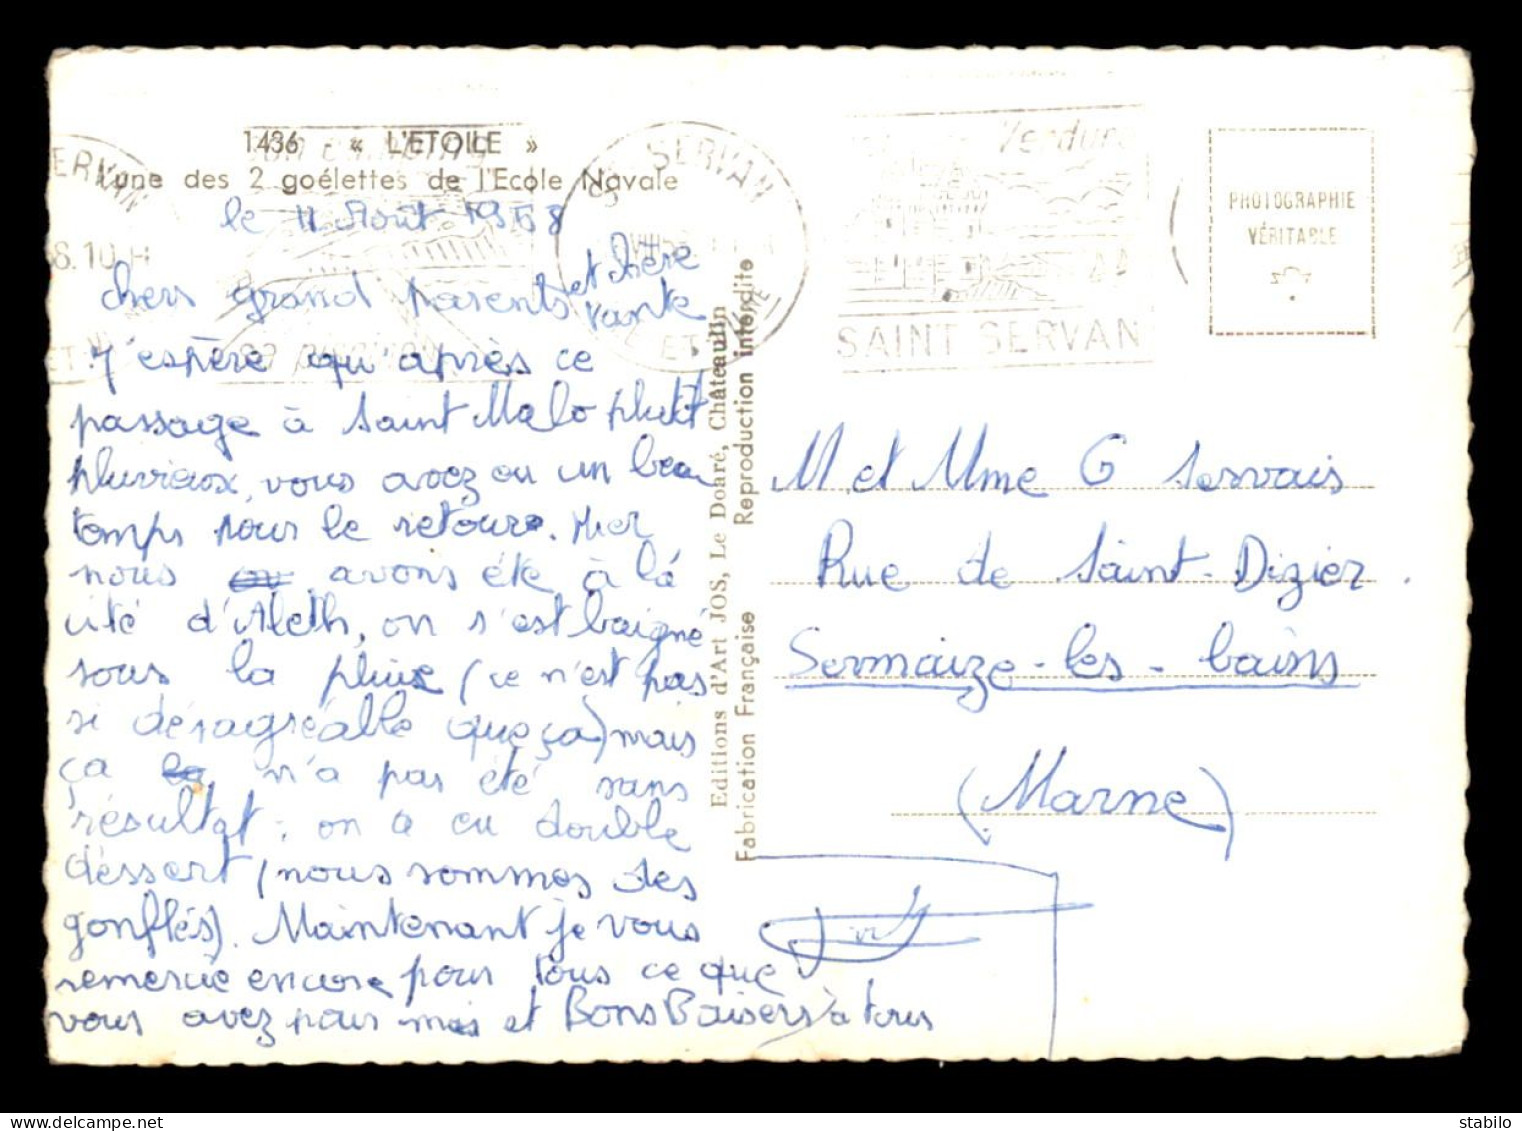 1436 « L'ETOILE »
L'une des 2 goélettes de l'Ecole Navale
le 11 Août 1958
chers grand parents et chère
tante
J'espère qu'après ce
passage à Saint Malo plutôt
pluvieux, vous avez eu un beau
temps pour le retour. Hier
nous avons été à la
cité d'Aleth, on s'est baigné
sous la pluie (ce n'est pas
si désagréable que ça) mais
ça n'a pas été sans
résultat ; on a eu double
dessert (nous sommes des
gonflés). Maintenant je vous
remercie encore pour tous ce que
vous avez pour mes et Bons Baisers à tous
Editions d'Art JOS, Le Doaré, Châteaulin
Fabrication Française Reproduction interdite
ST SERVAN
ILLE ET VNE
Verdure
SAINT SERVAN
ERVAN
8.10 H
ET VNE
PHOTOGRAPHIE
VÉRITABLE
M et Mme G Servais
Rue de Saint-Dizier.
Sermaize-les-bains
(Marne)
stabilo